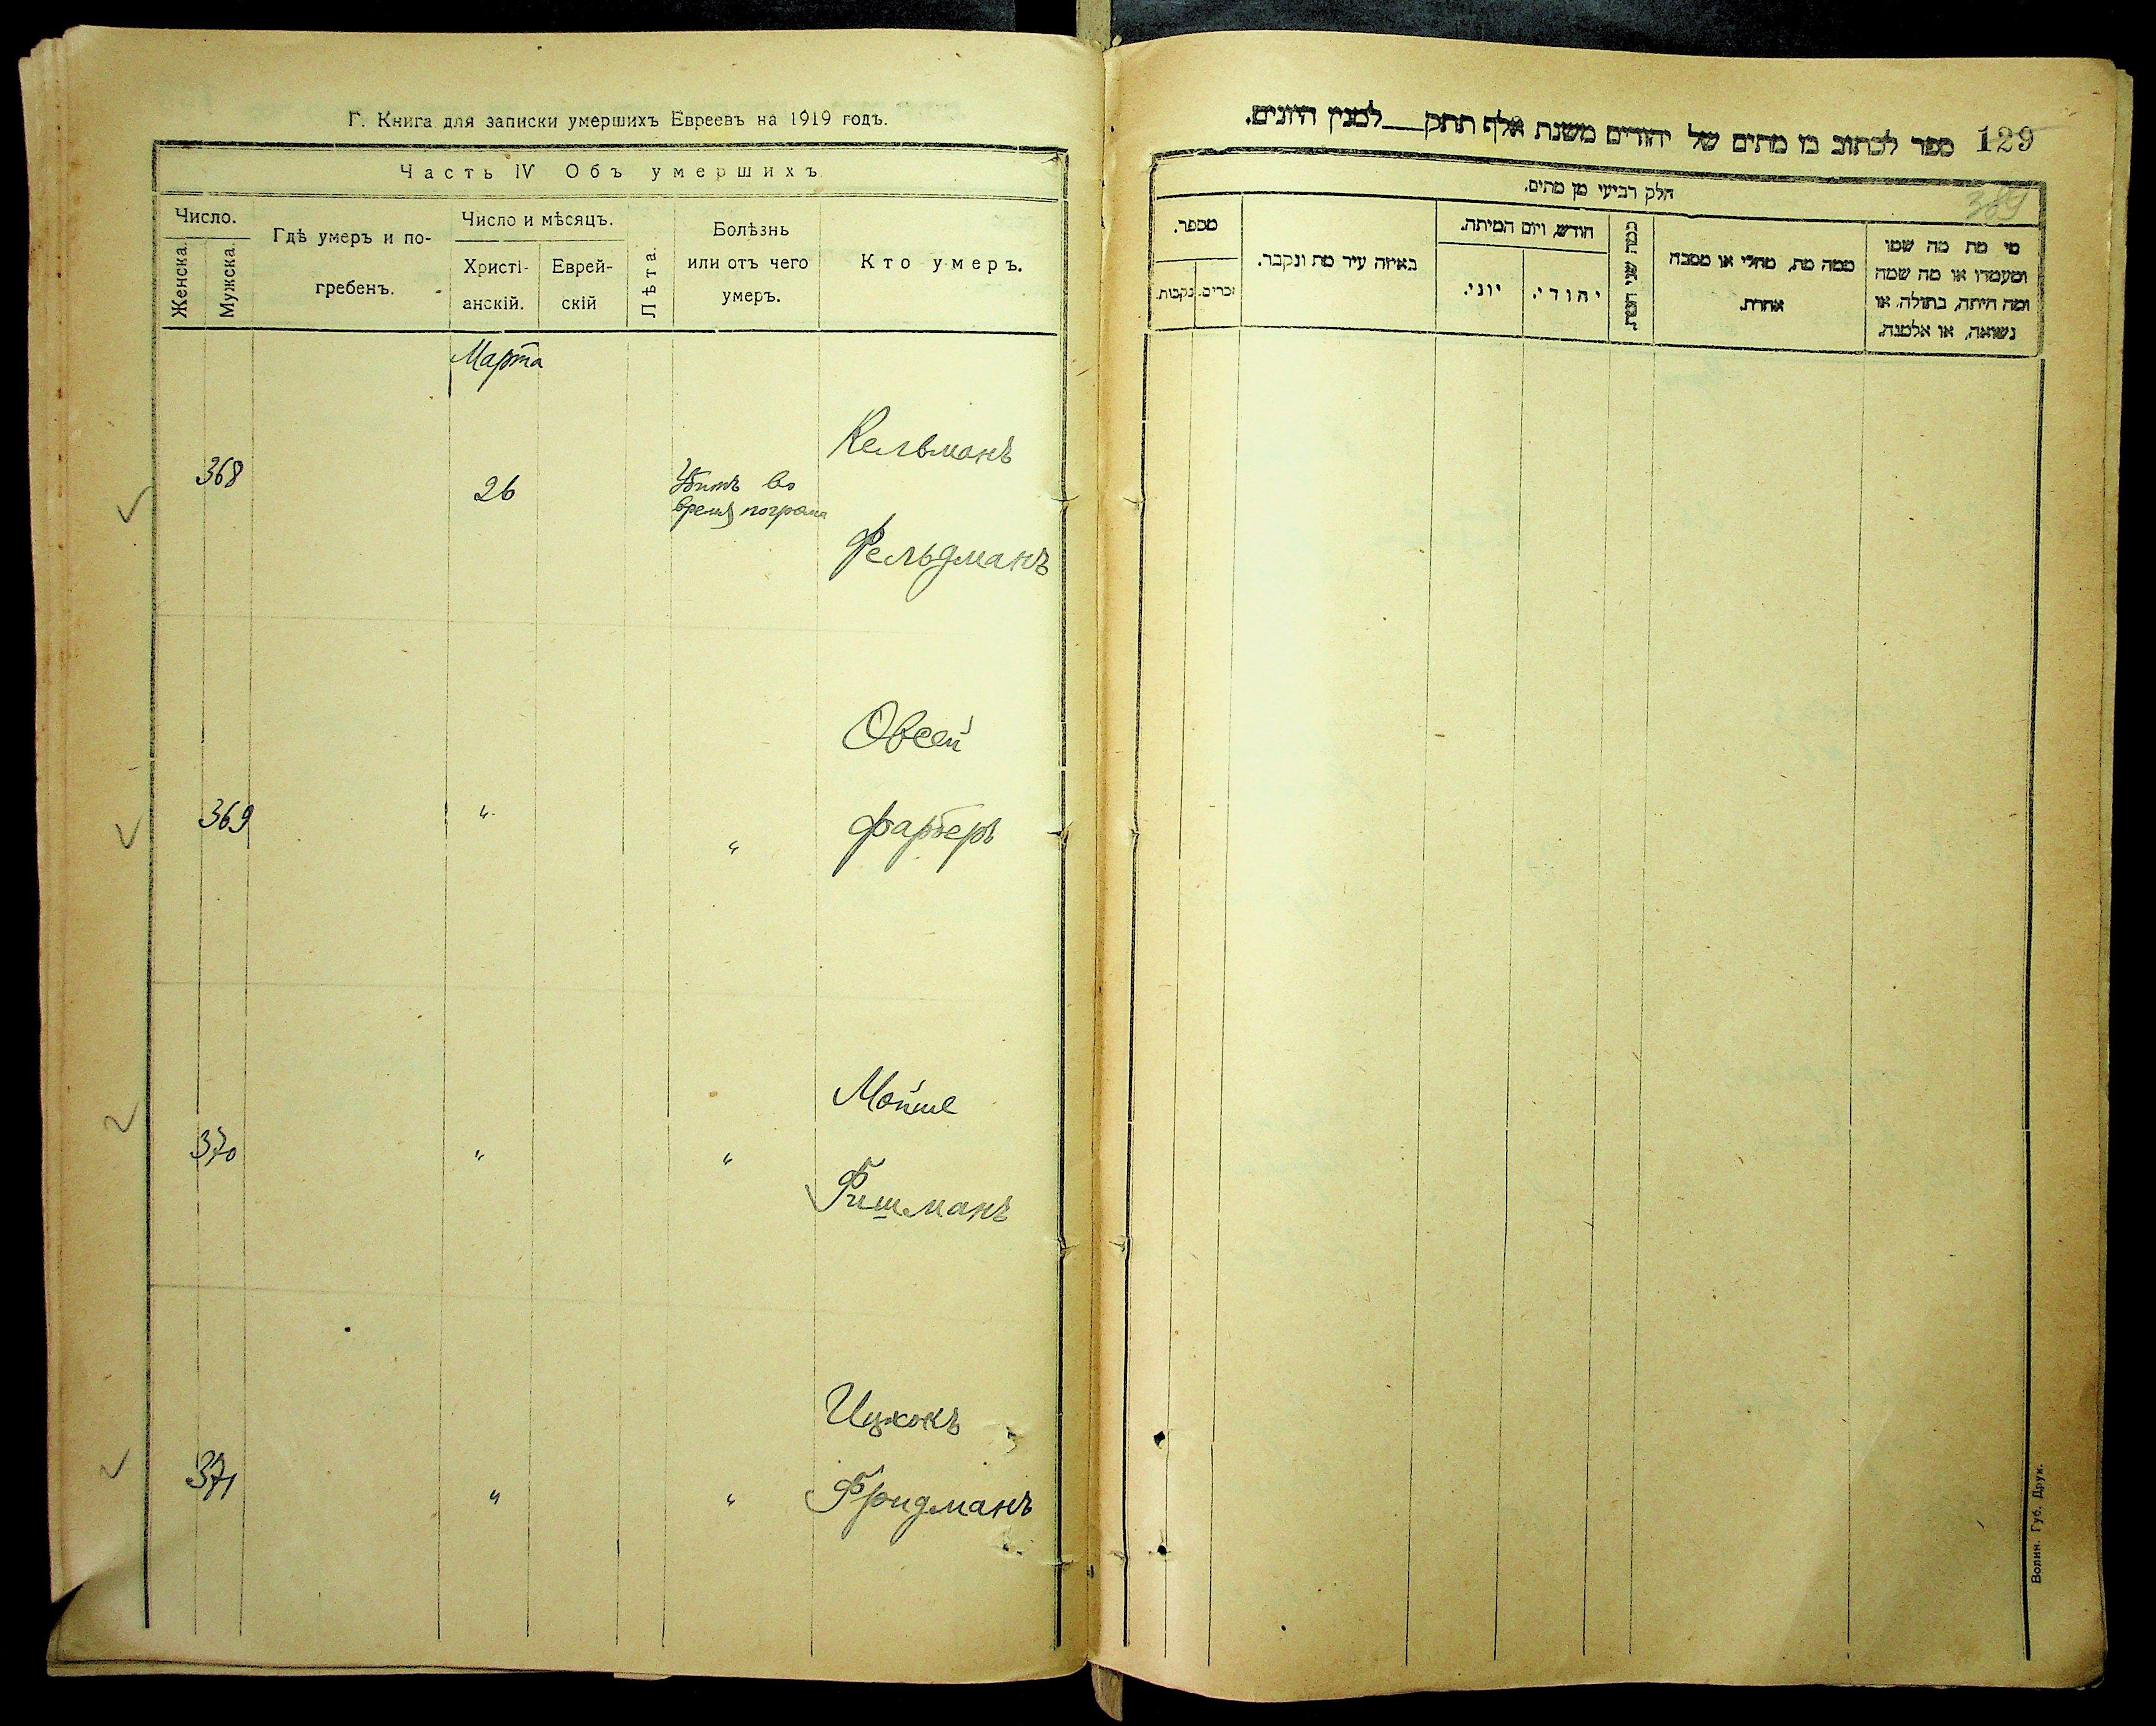 Г. Книга для записки умершихъ Евреевъ на 1919 годъ.
Часть IV Объ умершихъ
Число.
Женска.
Мужска.
Гдѣ умеръ и по-
гребенъ.
Число и мѣсяцъ.
Христі-
анскій.
Еврей-
скій
Лѣта.
Болѣзнь
или отъ чего
умеръ.
Кто умеръ.
Марта
368
26
Убитъ во
время погрома
Кельманъ
Фельдманъ
369
"
"
Овсей
Фарберъ
370
"
"
Мойше
Фишманъ
371
"
"
Ицхокъ
Фридманъ
129
ספר לכתוב בו מתים של יהודים משנת אלף תתק__למנין היונים.
389
חלק רביעי מן מתים.
מספר.
זכרים.
נקבות.
באיזה עיר מת ונקבר.
חודש, ויום המיתה.
יוני.
יהודי.
כמה שני המת.
ממה מת, מחלי או מסבה
אחרת.
מי מת מה שמו
ומעמדו או מה שמה
ומה היתה, בתולה, או
נשואה, או אלמנה.
Волин. Губ. Друк.